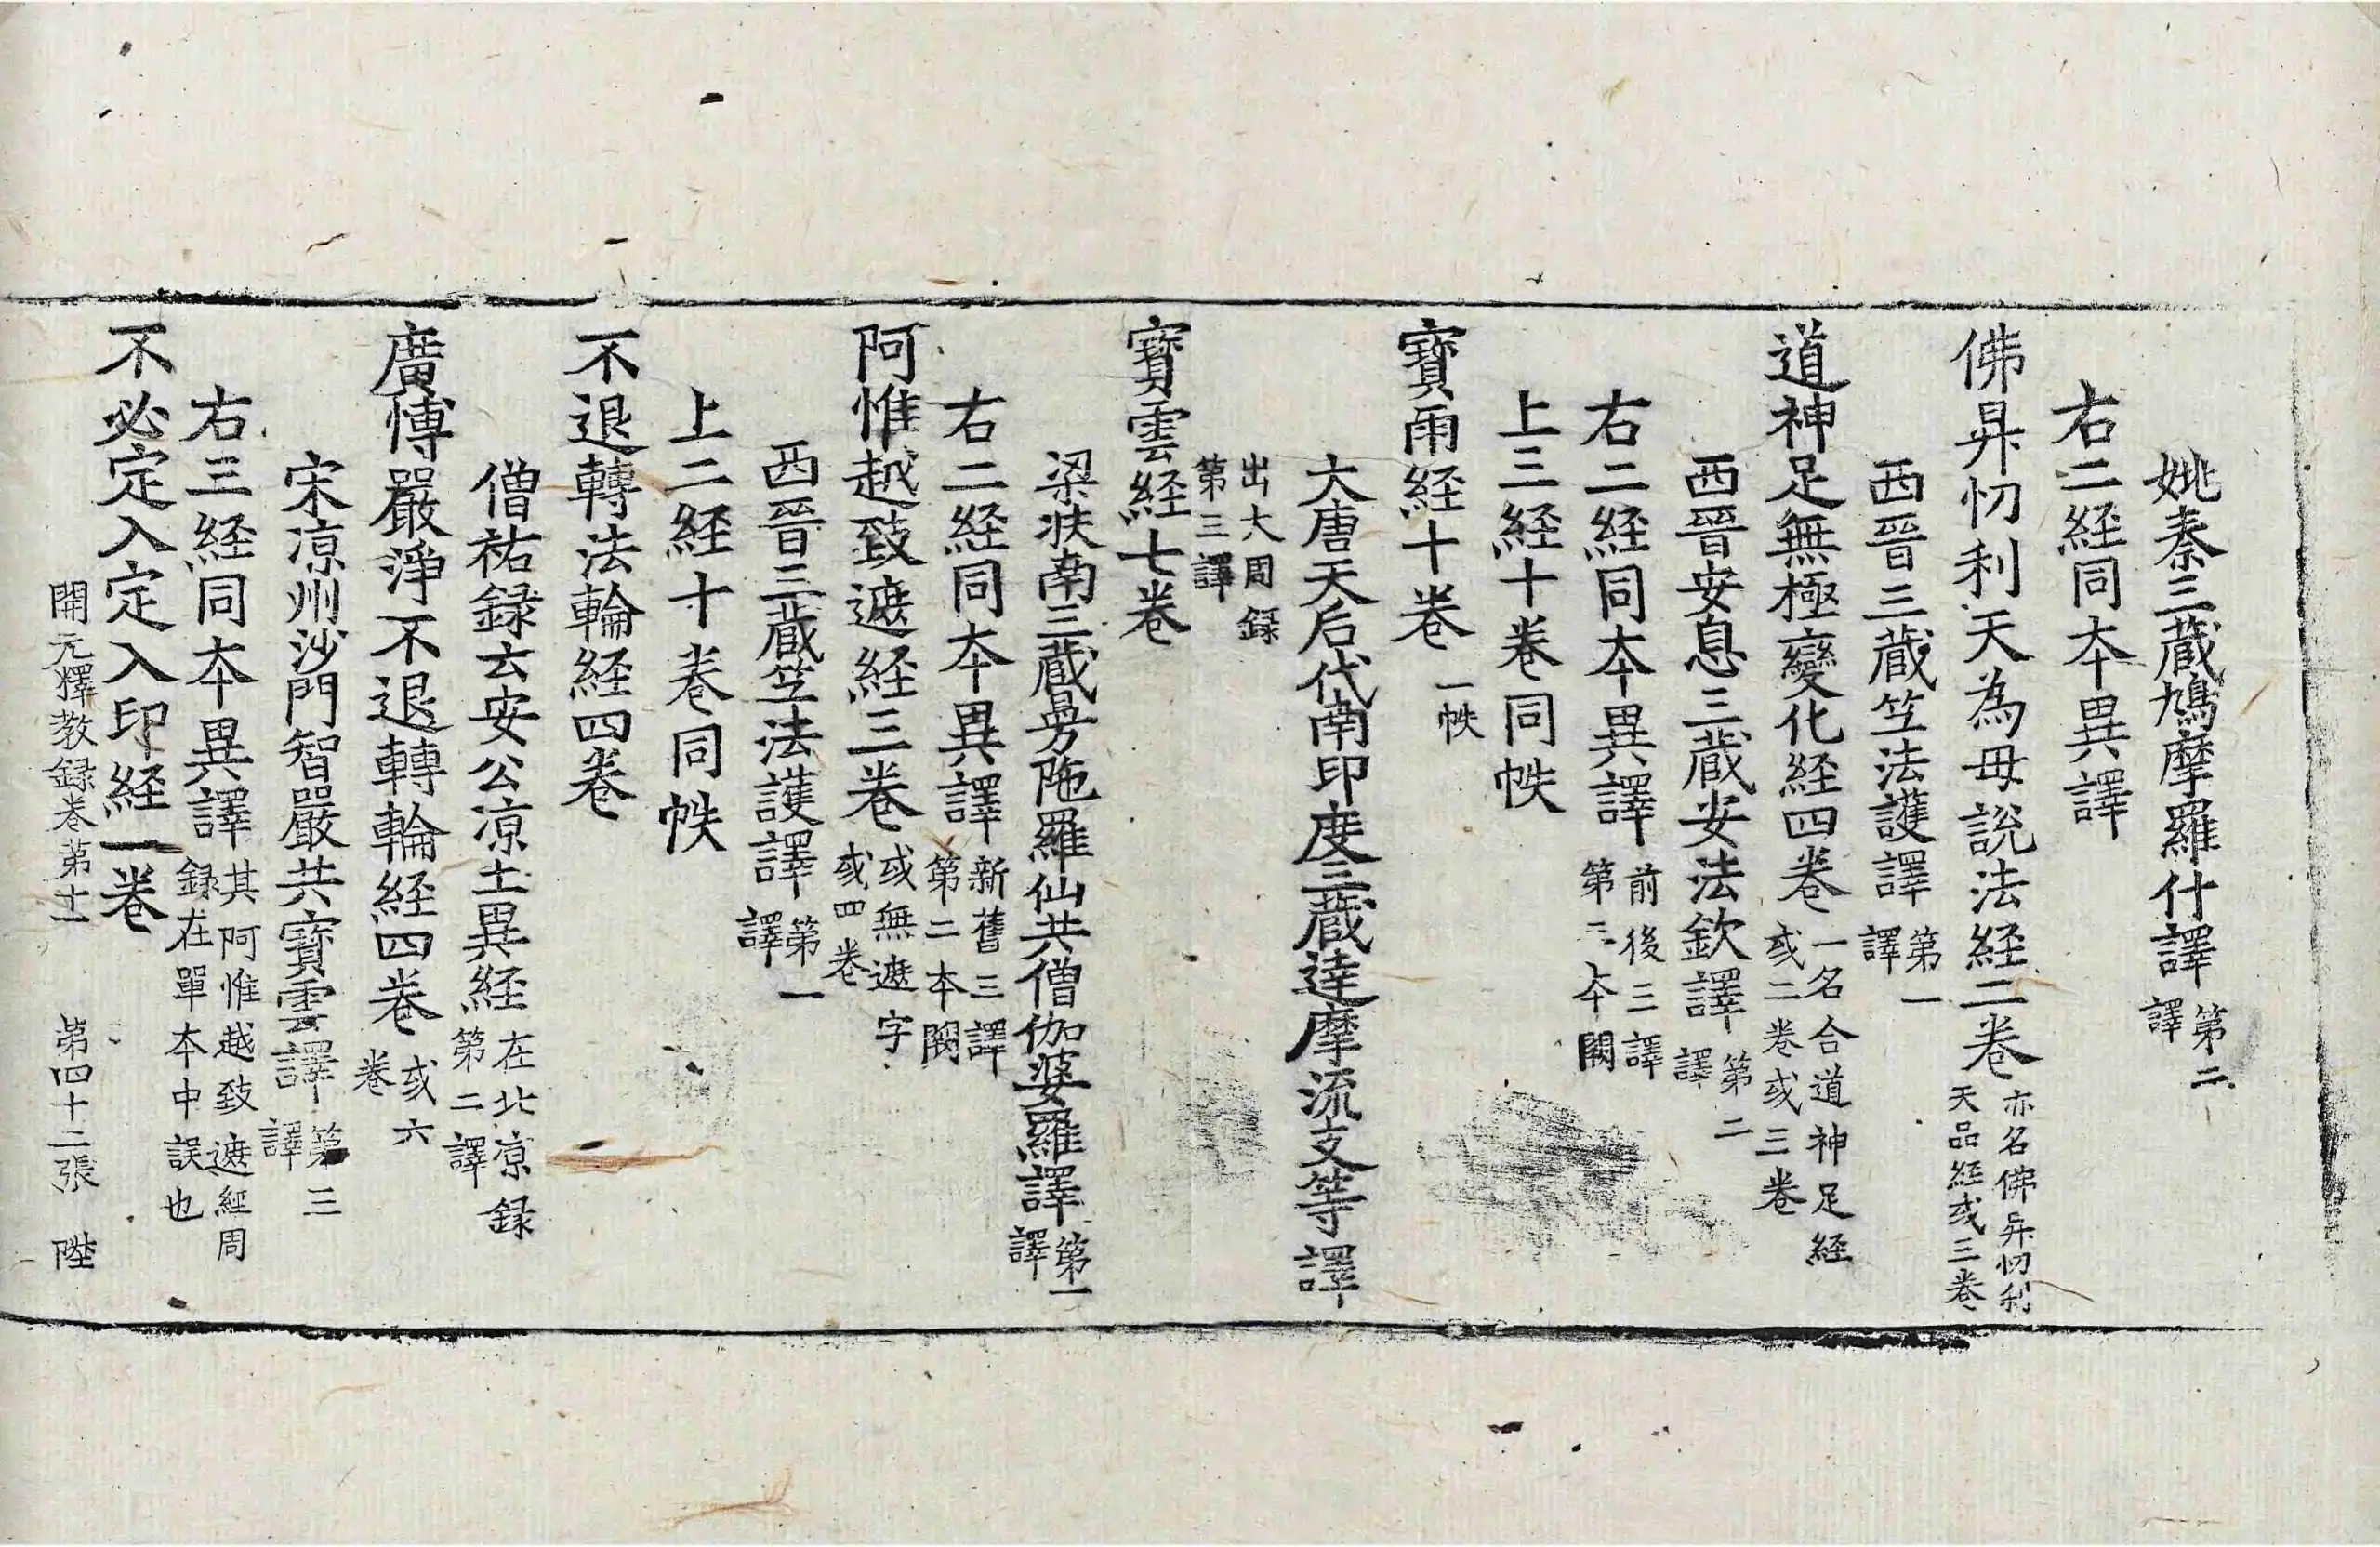 姚秦三藏鳩摩羅什譯第二譯
右二経同夲異譯
佛昇忉利天為母說法経二卷亦名佛昇忉利天品経或三卷
西晉三藏竺法護譯第一譯
道神足無極變化経四卷一名合道神足経或二卷或三卷
西晉安息三藏安法欽譯第二譯
右二経同夲異譯前後三譯第三夲闕
上三経十卷同帙
寶雨経十卷一帙
大唐天后代南印度三藏達摩流支等譯
出大周錄第三譯
寶雲経七卷
梁扶南三藏曼陁羅仙共僧伽婆羅譯第一譯
右二経同夲異譯新舊三譯第二本闕
阿惟越致遮経三卷或無遮字或四卷
西晉三藏竺法護譯第一譯
上二経十卷同帙
不退轉法輪経四卷
僧祐錄云安公涼土異経在北涼錄第二譯
廣博嚴淨不退轉輪経四卷或六卷
宋涼州沙門智嚴共寶雲譯第三譯
右三経同夲異譯其阿惟越致遮經周錄在單夲中誤也
不必定入定入印経一卷
開元釋教錄卷苐十一 苐四十二張 陛